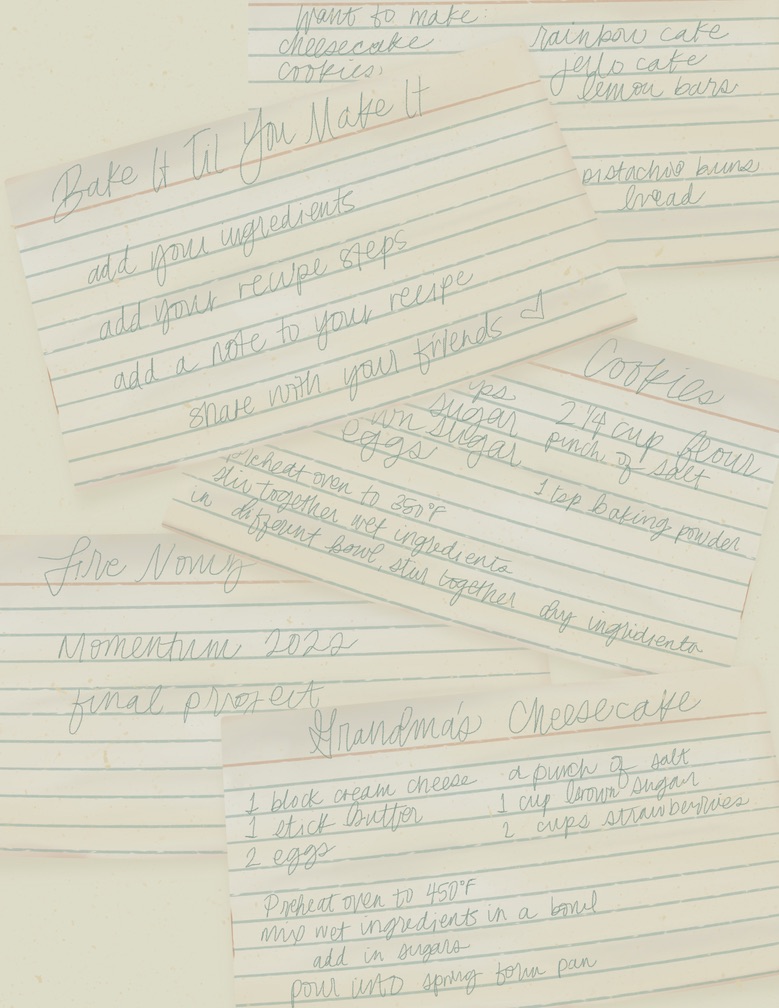 Want to make:
cheesecake
cookies,
rainbow cake
jello cake
lemon bars
pistachio buns
bread
Bake It Til You Make It
add your ingredients
add your recipe steps
add a note to your recipe
share with your friends
Cookies
sugar
eggs
2 1/4 cup flour
pinch of salt
1 tsp baking powder
Preheat oven to 350°F
stir together wet ingredients
in different bowl, stir together dry ingredients
Momentum 2022
final project
Grandma's Cheesecake
1 block cream cheese
1 stick butter
2 eggs
a pinch of salt
1 cup brown sugar
2 cups strawberries
Preheat oven to 450°F
mix wet ingredients in a bowl
add in sugars
pour into spring form pan